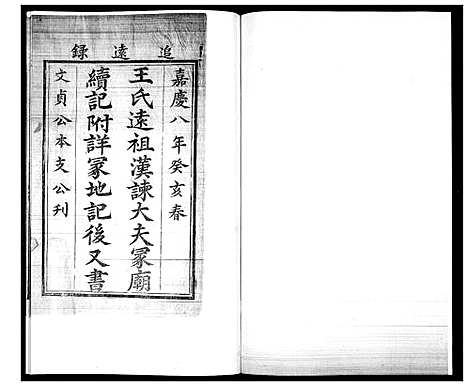 追遠錄
嘉慶八年癸亥春
王氏遠祖漢諫大夫冢廟
續記附詳冢地記後又書
文貞公本支公刋